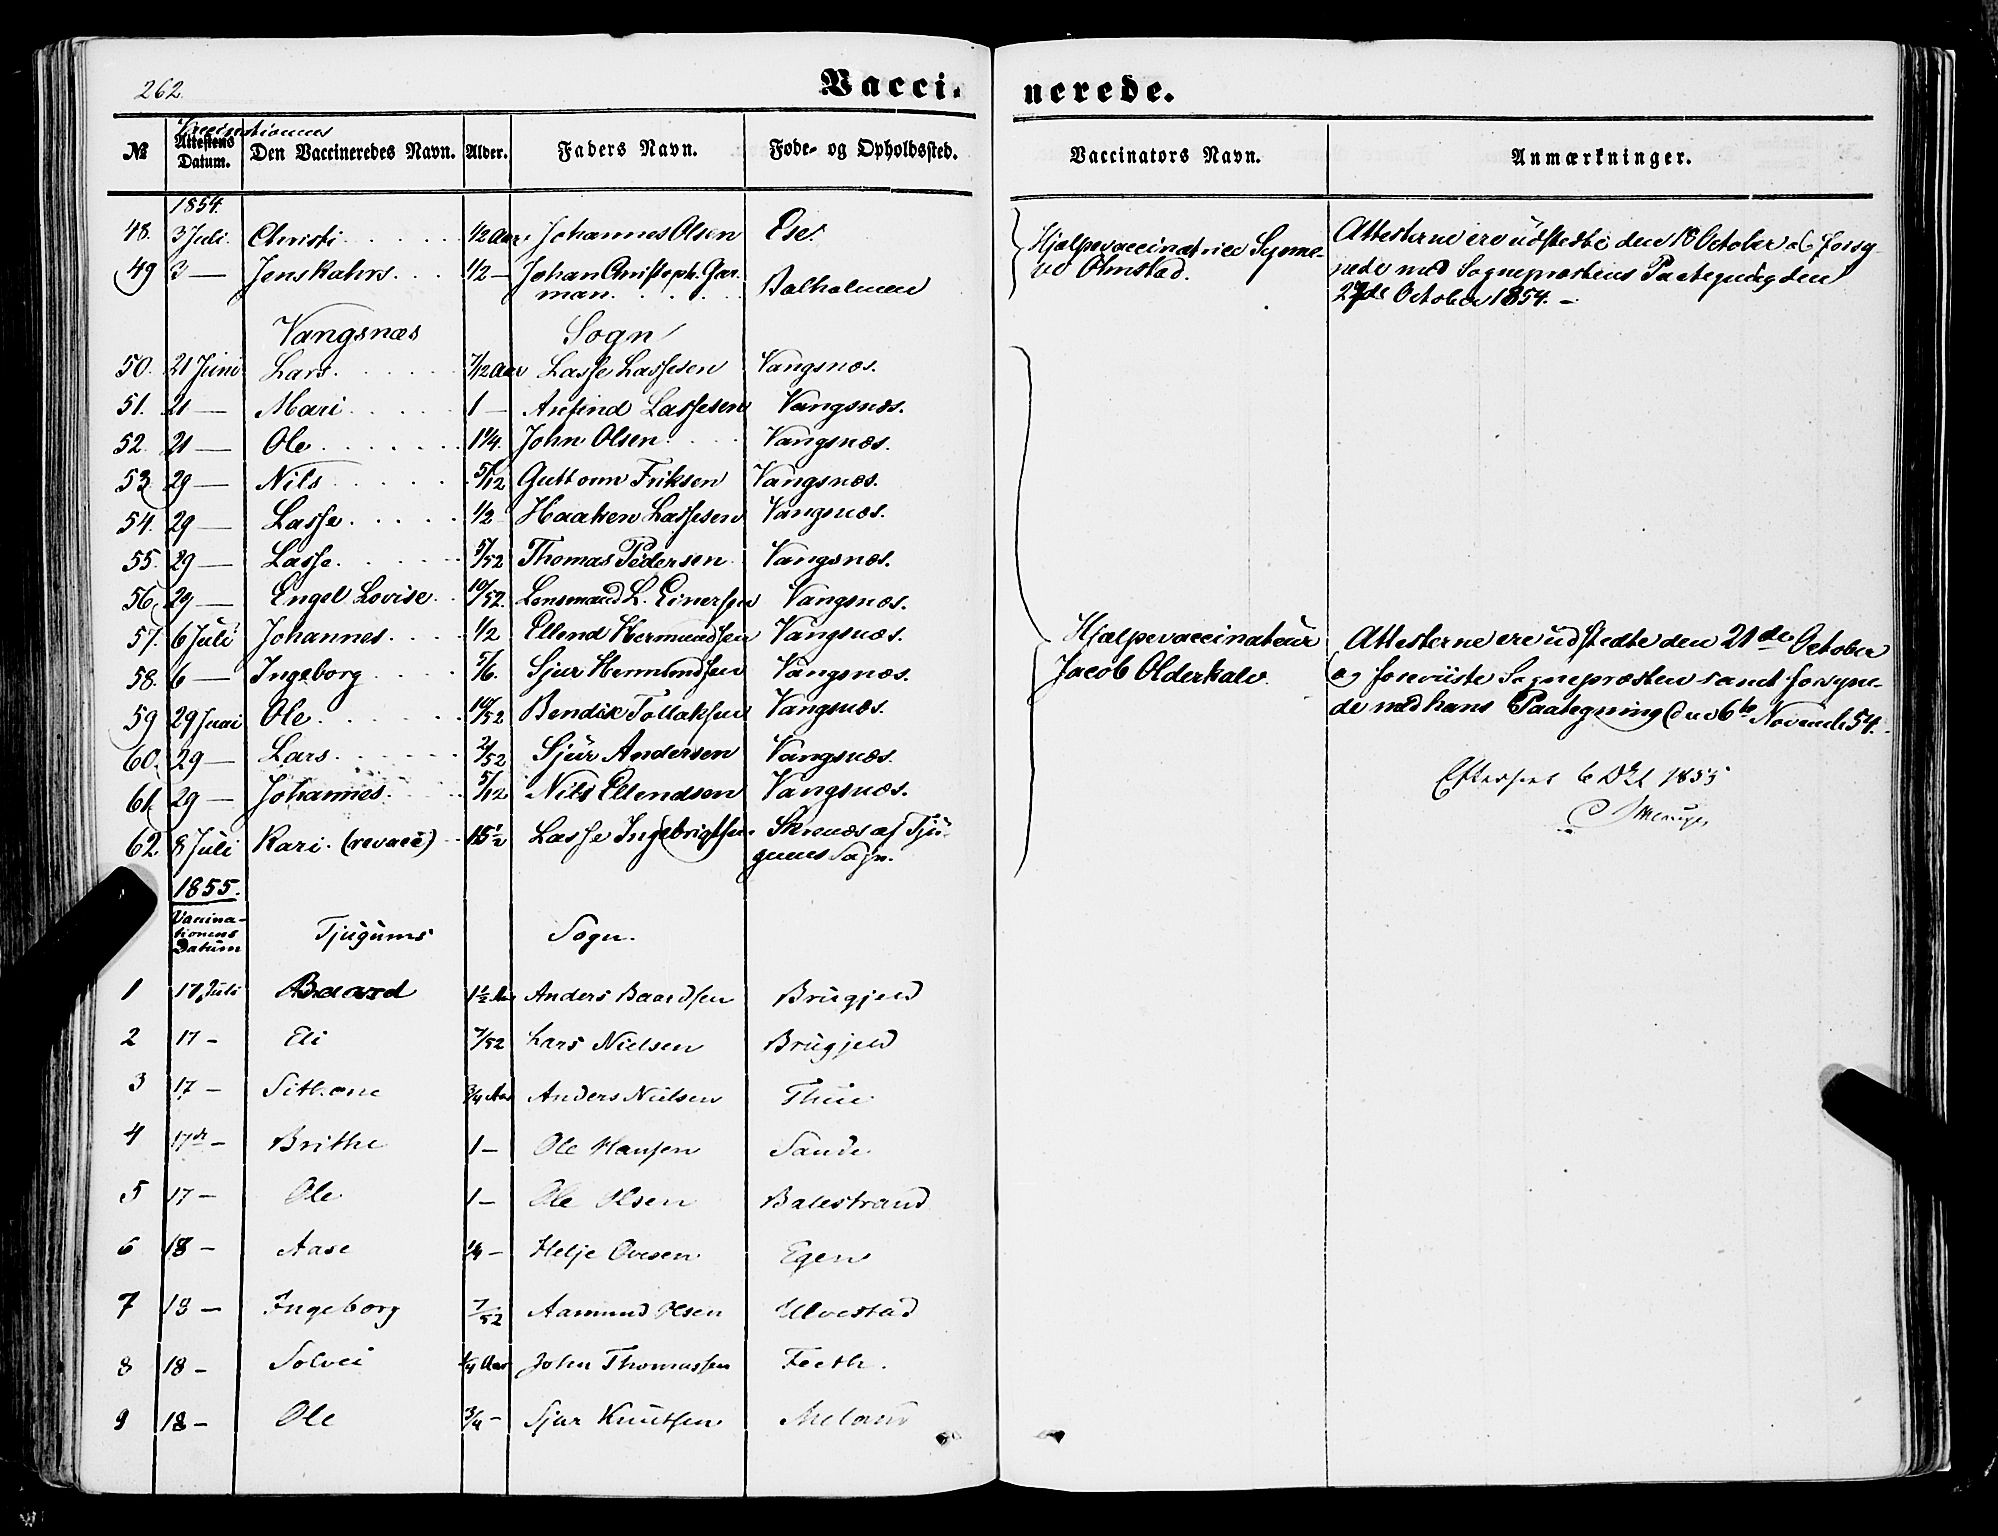 262.
Vacci-
nerede.
Vaccinationens
№ Attestens Datum. Den Vaccineredes Navn. Alder. Faders Navn. Føde- og Opholdssted. Vaccinators Navn. Anmærkninger.
1854.
48. 3 Juli. Christi 1/2 Aar Johannes Olsen Ese.
49 3 — Jens Rahrs 1/2 — Johan Christoph. Gar-
man. Balholmen
Hjælpevaccinatrice Synne-
ve Olmstad.
Attesterne ere udstedte den 18 October og forsy-
nede med Sognepræstens Paategning den
27de October 1854. —
Vangsnæs Sogn
50. 21 Juni Lars 7/12 Aar Lasse Lassesen Vangsnæs.
51. 21 — Mari 1 — Anfind Lassesen Vangsnæs.
52. 21 — Ole 1 1/4. John Olsen Vangsnæs.
53 29 — Nils 5/12 Guttorm Eriksen Vangsnæs.
54. 29 — Lasse 1/2 Haaken Lassesen Vangsnæs.
55. 29 — Lasse 5/52 Thomas Pedersen Vangsnæs.
56 29 — Engel Lovise 10/52. Lensmand L. Einersen Vangsnæs.
57. 6 Juli Johannes 1/2 Ellend Hermundsen Vangsnæs.
58. 6 — Ingeborg 5/6. Sjur Hermundsen Vangsnæs.
59 29 Juni Ole 10/52 Bendik Tollaksen Vangsnæs.
60. 29 — Lars 2/52 Sjur Andersen Vangsnæs.
61. 29 — Johannes 5/12 Nils Ellendsen Vangsnæs.
62. 8 Juli Kari (revacc) 15 1/2 Lasse Ingebrigtsen Skrenæs af Tju-
gums Sogn.
Hjælpevaccinateur
Jacob Olderkalv.
Attesterne ere udstedte den 21de October
og foreviste Sognepræsten samt forsyne-
de med hans Paategning den 6te Novemb. 54.
Efterseet 6 Oct 1855
1855.
Vaccina-
tionens
Datum
Tjugums Sogn.
1 17 Juli Baard 1 1/2 Aar Anders Baardsen Brugjeld
2 17 - Eli 7/52 Lars Nielsen Brugjeld
3 17 - Sithone 3/4 Aar Anders Nielsen Thue
4 17de - Brithe 1 — Ole Hansen Sande
5 17 — Ole 1 — Ole Olsen Balestrand
6 18 — Aase 1/4 — Helje Ovesen Egen
7 18 — Ingeborg 7/52 Aamund Olsen Ulvestad
8 18 — Solvei 1/4 Aar John Thomassen Feeth.
9 18 — Ole 3/4 — Sjur Knutsen Meland